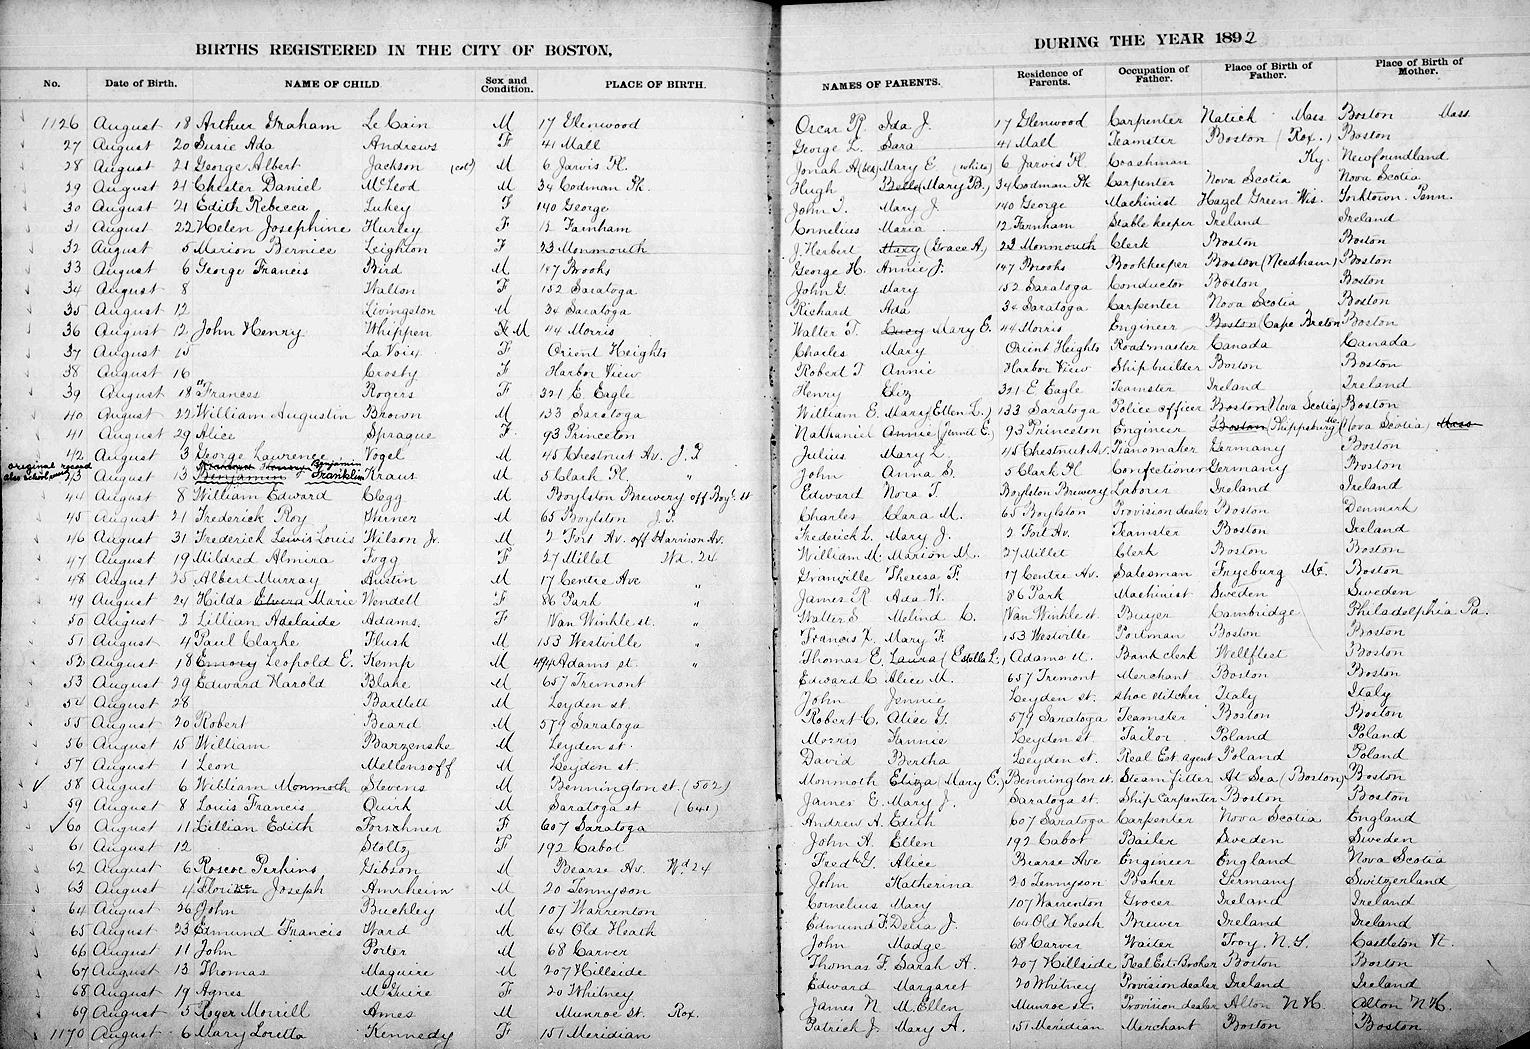 BIRTHS REGISTERED IN THE CITY OF BOSTON, DURING THE YEAR 1892
No. Date of Birth. NAME OF CHILD Sex and Condition. PLACE OF BIRTH. NAMES OF PARENTS. Residence of Parents. Occupation of Father. Place of Birth of Father. Place of Birth of Mother.
1126 August 18 Arthur Graham Le Cain M 17 Glenwood Oscar R. Ida J. 17 Glenwood Carpenter Natick Mass Boston Mass
27 August 20 Susie Ada Andrews F 41 Mall George L. Sara 41 Mall Teamster Boston (Rox.) Boston
28 August 21 George Albert Jackson (col) M 6 Jarvis Pl. Jonah A (blk) Mary E (white) 6 Jarvis Pl Coachman Ky. Newfoundland
29 August 21 Chester Daniel McLeod M 34 Codman Pk. Hugh Belle (Mary B.) 34 Codman Pk Carpenter Nova Scotia Nova Scotia
30 August 21 Edith Rebecca Luhey F 140 George John I. Mary J. 140 George Machinist Hazel Green Wis. Yorktown. Penn.
31 August 22 Helen Josephine Hurley F 12 Farnham Cornelius Maria 12 Farnham Stable keeper Ireland Ireland
32 August 5 Marion Bernice Leighton F 23 Monmouth J. Herbert Mary (Grace A.) 23 Monmouth Clerk Boston Boston
33 August 6 George Francis Bird M 147 Brooks George H. Annie J. 147 Brooks Bookkeeper Boston (Needham) Boston
34 August 8 Walton F 152 Saratoga John G. Mary 152 Saratoga Conductor Boston Boston
35 August 12 Livingston M 34 Saratoga Richard Ada 34 Saratoga Carpenter Nova Scotia Boston
36 August 12 John Henry Whippen M 44 Morris Walter T. Lucy Mary E. 44 Morris Engineer Boston (Cape Breton Boston
37 August 15 La Voix F Orient Heights Charles Mary Orient Heights Roadmaster Canada Canada
38 August 16 Crosby F Harbor View Robert T Annie Harbor View Ship builder Boston Boston
39 August 18 Frances Rogers F 321 E. Eagle Henry Eliz 321 E Eagle Teamster Ireland Ireland
40 August 22 William Augustin Brown M 133 Saratoga William E. Mary (Ellen L.) 133 Saratoga Police officer Boston (Nova Scotia) Boston
41 August 29 Alice Sprague F 93 Princeton Nathaniel Annie (Jennet E.) 93 Princeton Engineer Boston (Phippsburg Me (Nova Scotia) Mass
42 August 3 George Lawrence Vogel M 45 Chestnut Av. J. P Julius Mary L. 45 Chestnut Av. Pianomaker Germany Boston
original record also school
43 August 13 Benjamin Franklin Kraus M 5 Clark Pl. " John Anna S. 5 Clark Pl Confectioner Germany Boston
44 August 8 William Edward Clegg M Boylston Brewery off Boyl. st Edward Nora T. Boylston Brewery Laborer Ireland Ireland
45 August 21 Frederick Roy Werner M 65 Boylston J. P. Charles Clara M. 65 Boylston Provision dealer Boston Denmark
46 August 31 Frederick Lewis Louis Wilson Jr. M 2 Fort Av. off Harrison Av. Frederick L. Mary J. 2 Fort Av. Teamster Boston Ireland
47 August 19 Mildred Almira Fogg F 27 Millet Wd. 24 William M. Marion M. 27 Millet Clerk Boston Boston
48 August 25 Albert Murray Austin M 17 Centre Ave " Granville Theresa F. 17 Centre Av. Salesman Fryeburg Me. Boston
49 August 24 Hilda Elvira Marie Wendell F 86 Park " James R Ada W. 86 Park Machinist Sweden Sweden
50 August 2 Lillian Adelaide Adams. F Van Winkle st. " Walter S Melind C. Van Winkle st. Buyer Cambridge Philadelphia Pa.
51 August 4 Paul Clarke Flusk M 153 Westville " Francis L. Mary F. 153 Westville Portman Boston Boston
52 August 18 Emory Leopold E. Kemp M 494 Adams st. " Thomas E. Laura (Estella L.) Adams st. Bank clerk Wellfleet Boston
53 August 29 Edward Harold Blake M 657 Tremont Edward C Alice M. 657 Tremont Merchant Boston Boston
54 August 28 Bartlett M Leyden st. John Jennie Leyden st. Shoe stitcher Italy Italy
55 August 20 Robert Beard M 579 Saratoga Robert C. Alice G. 579 Saratoga Teamster Boston Boston
56 August 15 William Barzenske M Leyden st. Morris Fannie Leyden st. Tailor Poland Poland
57 August 1 Leon Mettensoff M Leyden st. David Bertha Leyden st. Real Est. agent Poland Poland
58 August 6 William Monmoth Stevens M Bennington st. (502) Monmoth Eliza (Mary E.) Bennington st. Steam fitter At Sea (Boston) Boston
59 August 8 Louis Francis Quirk M Saratoga st (641) James E. Mary J. Saratoga st. Ship Carpenter Boston Boston
60 August 11 Lillian Edith Forschner F 607 Saratoga Andrew A. Edith 607 Saratoga Carpenter Nova Scotia England
61 August 12 Stoltz F 192 Cabot John A. Ellen 192 Cabot Bailer Sweden Sweden
62 August 6 Roscoe Perkins Gibson M Bearse Av. Wd 24 Fredk G. Alice Bearse Ave Engineer England Nova Scotia
63 August 4 Florian Joseph Amrheim M 20 Tennyson John Katherina 20 Tennyson Baker Germany Switzerland
64 August 26 John Buckley M 107 Warrenton Cornelius Mary 107 Warrenton Grocer Ireland Ireland
65 August 23 Edmund Francis Ward M 64 Old Heath Edmund F. Delia J. 64 Old Heath Brewer Ireland Ireland
66 August 11 John Porter M 68 Carver John Madge 68 Carver Waiter Troy. N.Y. Castleton Vt.
67 August 13 Thomas Maguire M 207 Hillside Thomas F. Sarah A. 207 Hillside Real Est. Broker Boston Boston
68 August 19 Agnes McGuire F 20 Whitney Edward Margaret 20 Whitney Provision dealer Ireland Ireland
69 August 5 Roger Morrill Ames M Munroe St. Rox. James N. M. Ellen Munroe st. Provision dealer Alton N H. Alton N H.
1170 August 6 Mary Loretta Kennedy F 151 Meridian Patrick J. Mary A. 151 Meridian Merchant Boston Boston